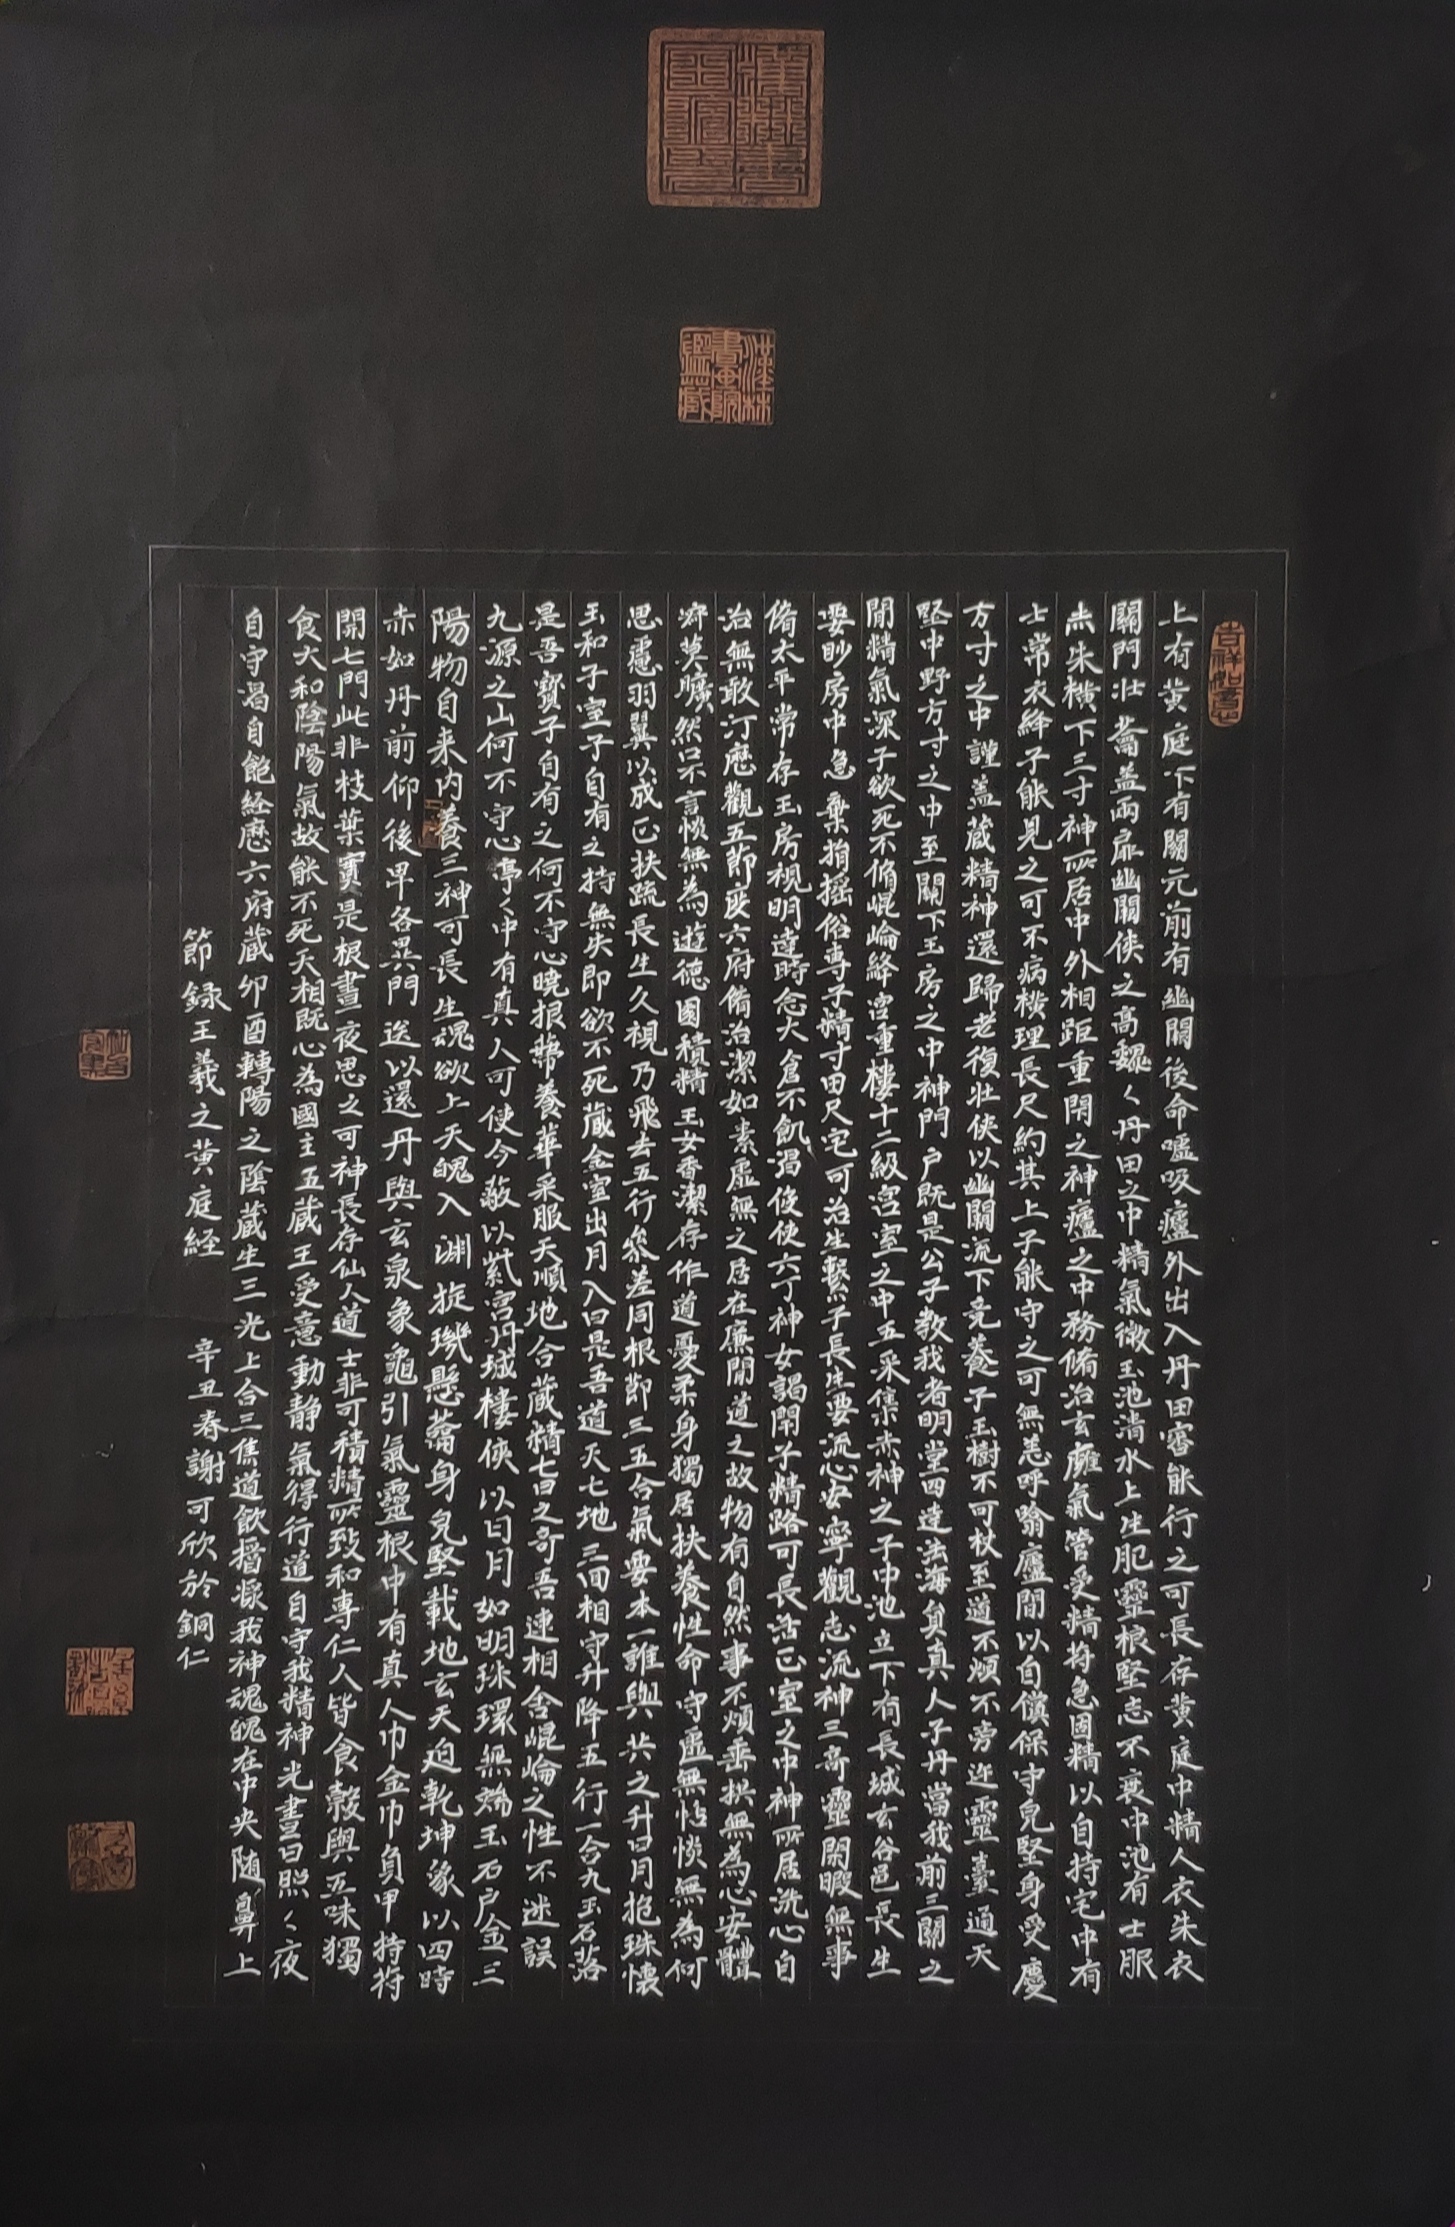 上有黄庭下有關元前有幽關後命嚧吸廬外出入丹田審能行之可長存黄庭中精人衣朱衣
關門壮蘥盖兩扉幽關侠之高魏々丹田之中精氣微玉池清水上生肥靈根堅志不衰中池有士服
赤朱橫下三寸神所居中外相距重閇之神廬之中務脩治玄膺氣管受精符急固精以自持宅中有
士常衣絳子能見之可不病橫理長尺約其上子能守之可無恙呼噏廬間以自償保守皃堅身受慶
方寸之中謹盖蔵精神還歸老復壮侠以幽關流下竟養子玉樹不可杖至道不煩不旁迕靈臺通天
堅中野方寸之中至關下玉房之中神門户既是公子教我者明堂四達法海負真人子丹當我前三關之
閒精氣深子欲死不脩崐崘絳宫重樓十二級宫室之中五采集赤神之子中池立下有長城玄谷邑長生
要眇房中急棄捐摇俗專子精寸田尺宅可治生繫子長生要流心安寧觀志流神三奇靈閑暇無事
脩太平常存玉房視明達時念大倉不飢渴伇使六丁神女謁閇子精路可長活正室之中神所居洗心自
治無敢汙歴觀五莭度六府脩治潔如素虚無之居在廉閒道之故物有自然事不煩垂拱無為心安體
寂莫曠然口不言惔無為遊德園積精玉女香潔存作道憂柔身獨居扶養性命守虚無恬惔無為何
思慮羽翼以成正扶疏長生久視乃飛去五行參差同根莭三五合氣要本一誰與共之升日月抱珠懷
玉和子室子自有之持無失即欲不死蔵金室出月入日是吾道天七地三回相守升降五行一合九玉石落
是吾寳子自有之何不守心曉根蔕養華采服天順地合蔵精七日之奇吾連相舍崐崘之性不迷誤
九源之山何不守心亭々中有真人可使今蔽以紫宫丹城樓侠以日月如明珠環無端玉石户金三
陽物自来内養三神可長生魂欲上天魄入淵旋璣懸蘥身皃堅載地玄天迫乾坤象以四時
赤如丹前仰後卑各異門送以還丹與玄泉象龜引氣靈根中有真人巾金巾負甲持符
開七門此非枝葉實是根晝夜思之可神長存仙人道士非可積精所致和專仁人皆食穀與五味獨
食大和陰陽氣故能不死天相既心為國主五蔵王受意動静氣得行道自守我精神光晝日照々夜
自守渴自飽経歴六府蔵卯酉轉陽之陰蔵生三光上合三焦道飲醬漿我神魂魄在中央随鼻上
節録王羲之黄庭経 辛丑春謝可欣於銅仁